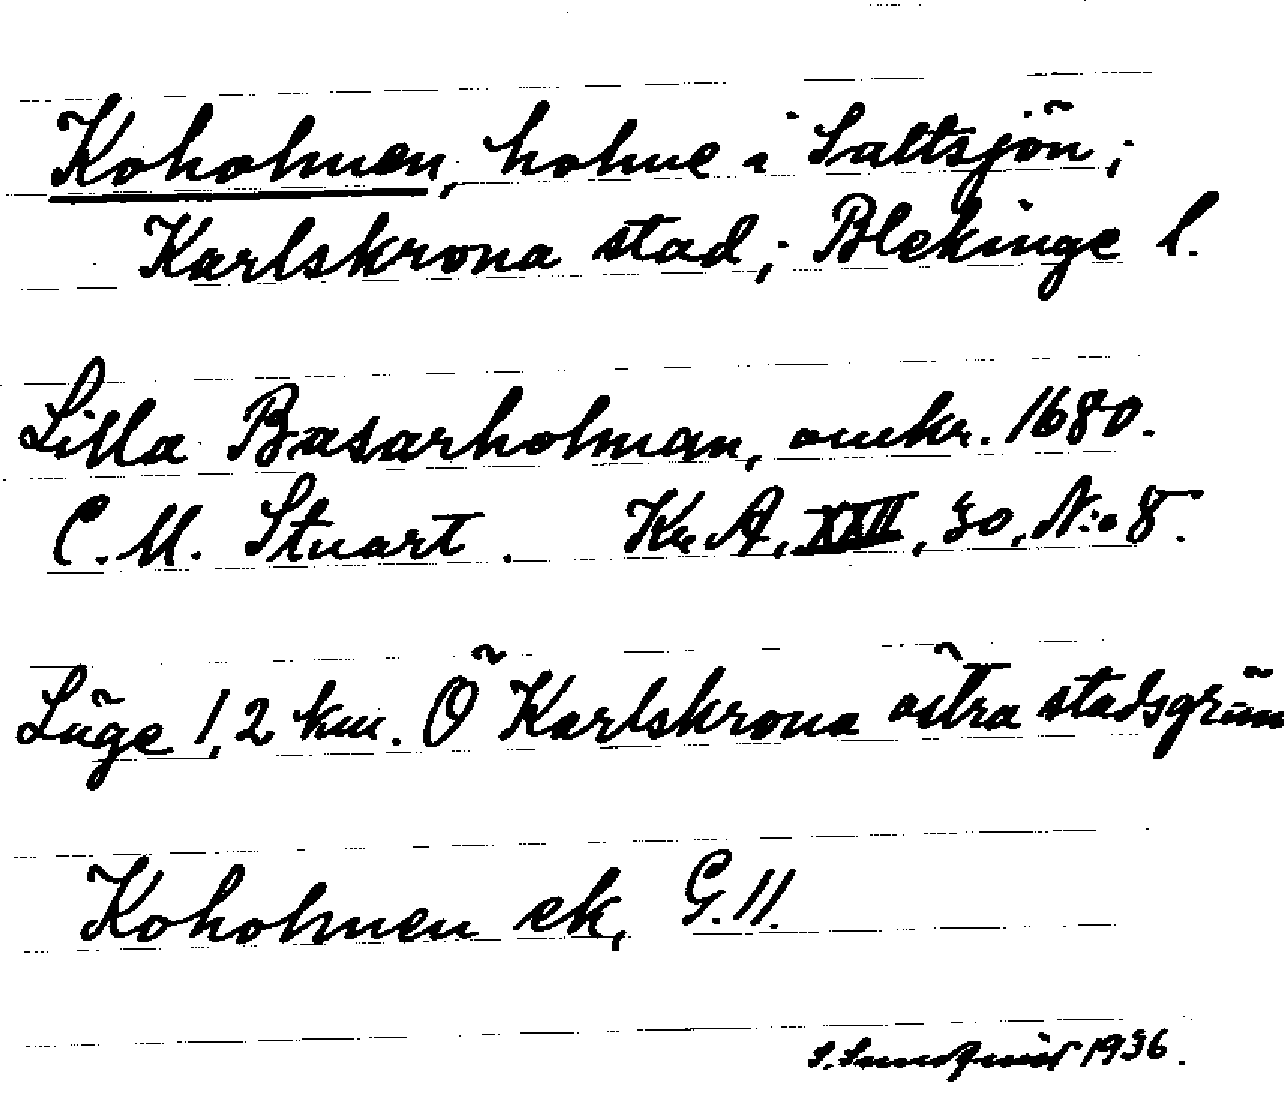 Koholmen, holme i Saltsjön;
Karlskrona stad; Blekinge l.
Lilla Basarholman, omkr. 1680.
C. M. Stuart. Kr. A, XXII, 30, N:o 8.
Läge 1,2 km. Ö Karlskrona östra stadsgräns
Koholmen ek, G. 11.
S. Sundqvist 1936.